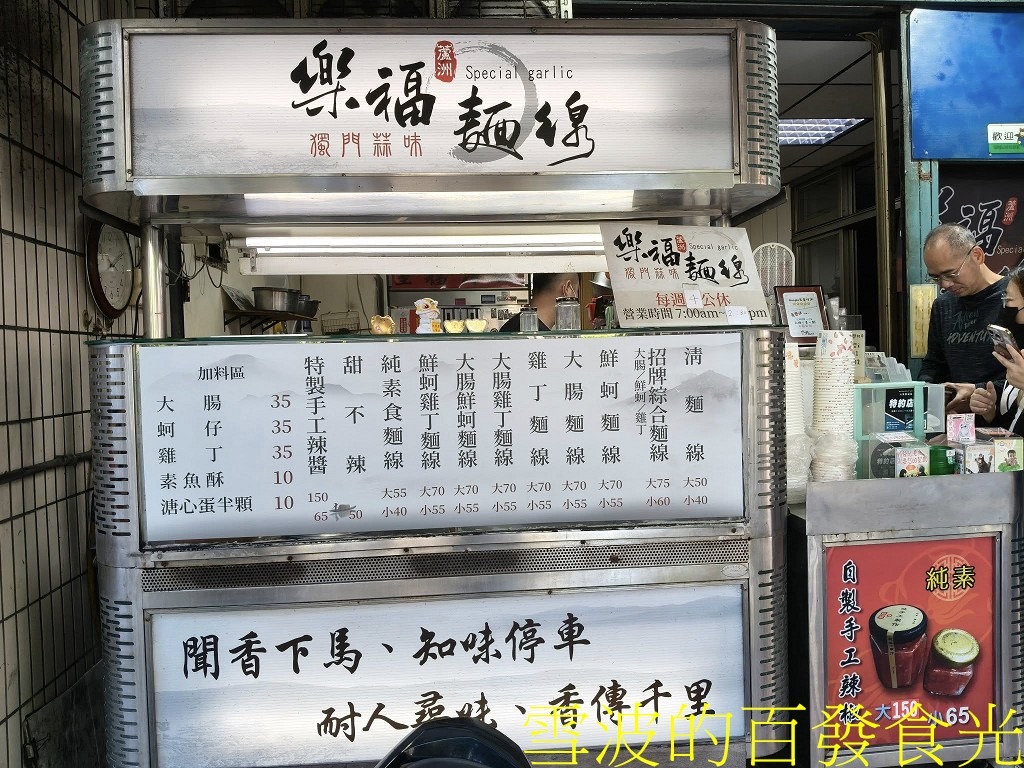 樂福麵線
蘆洲
Special garlic
獨門蒜味
歡迎
樂福麵線
蘆洲
Special garlic
獨門蒜味
每週4公休
營業時間 7:00am~
pm
加料區
大腸 35
蚵仔 35
雞丁 35
素魚酥 10
溏心蛋半顆 10
特製手工辣醬 150 65
甜不辣 50
純素食麵線 大55 小40
鮮蚵雞丁麵線 大70 小55
大腸鮮蚵麵線 大70 小55
大腸雞丁麵線 大70 小55
雞丁麵線 大70 小55
大腸麵線 大70 小55
鮮蚵麵線 大70 小55
招牌綜合麵線 大腸/鮮蚵/雞丁 大75 小60
清麵線 大50 小40
福
蘆洲
Specia
ADVENTURE
特約店
聞香下馬、知味停車
耐人尋味、香傳千里
純素
自製手工辣椒
大150 小65
雪波的百發食光